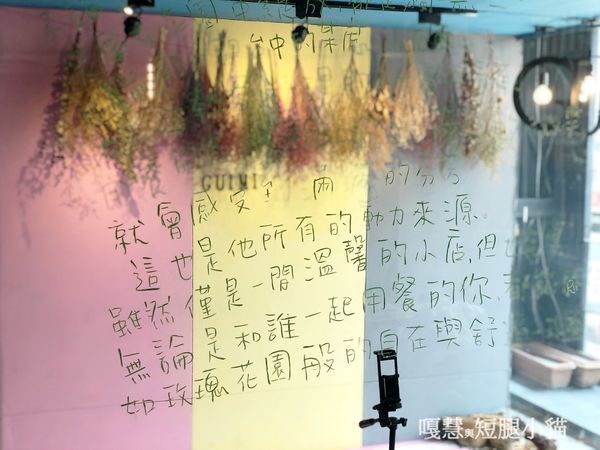 台中的某
GUIMI
就會感受到 兩 的分
這也是他所有的動力來源。
雖然僅是一間溫馨的小店,但
無論是和誰一起用餐的你,
如玫瑰花園般的自在與舒
嘎慧與短腿小貓